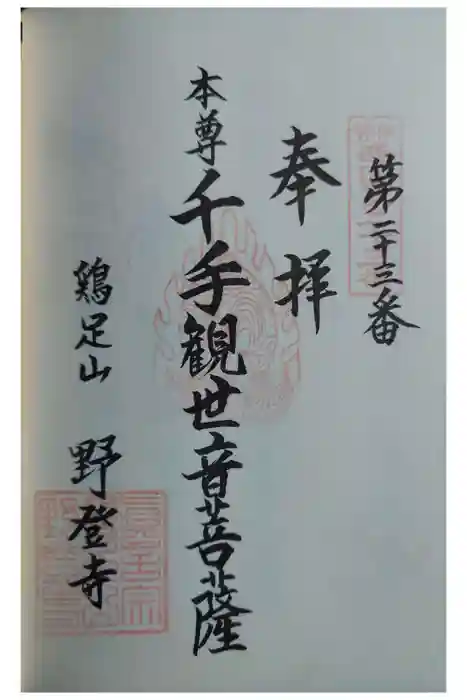 第二十三番
奉拝
本尊 千手観世音菩薩
鶏足山 野登寺